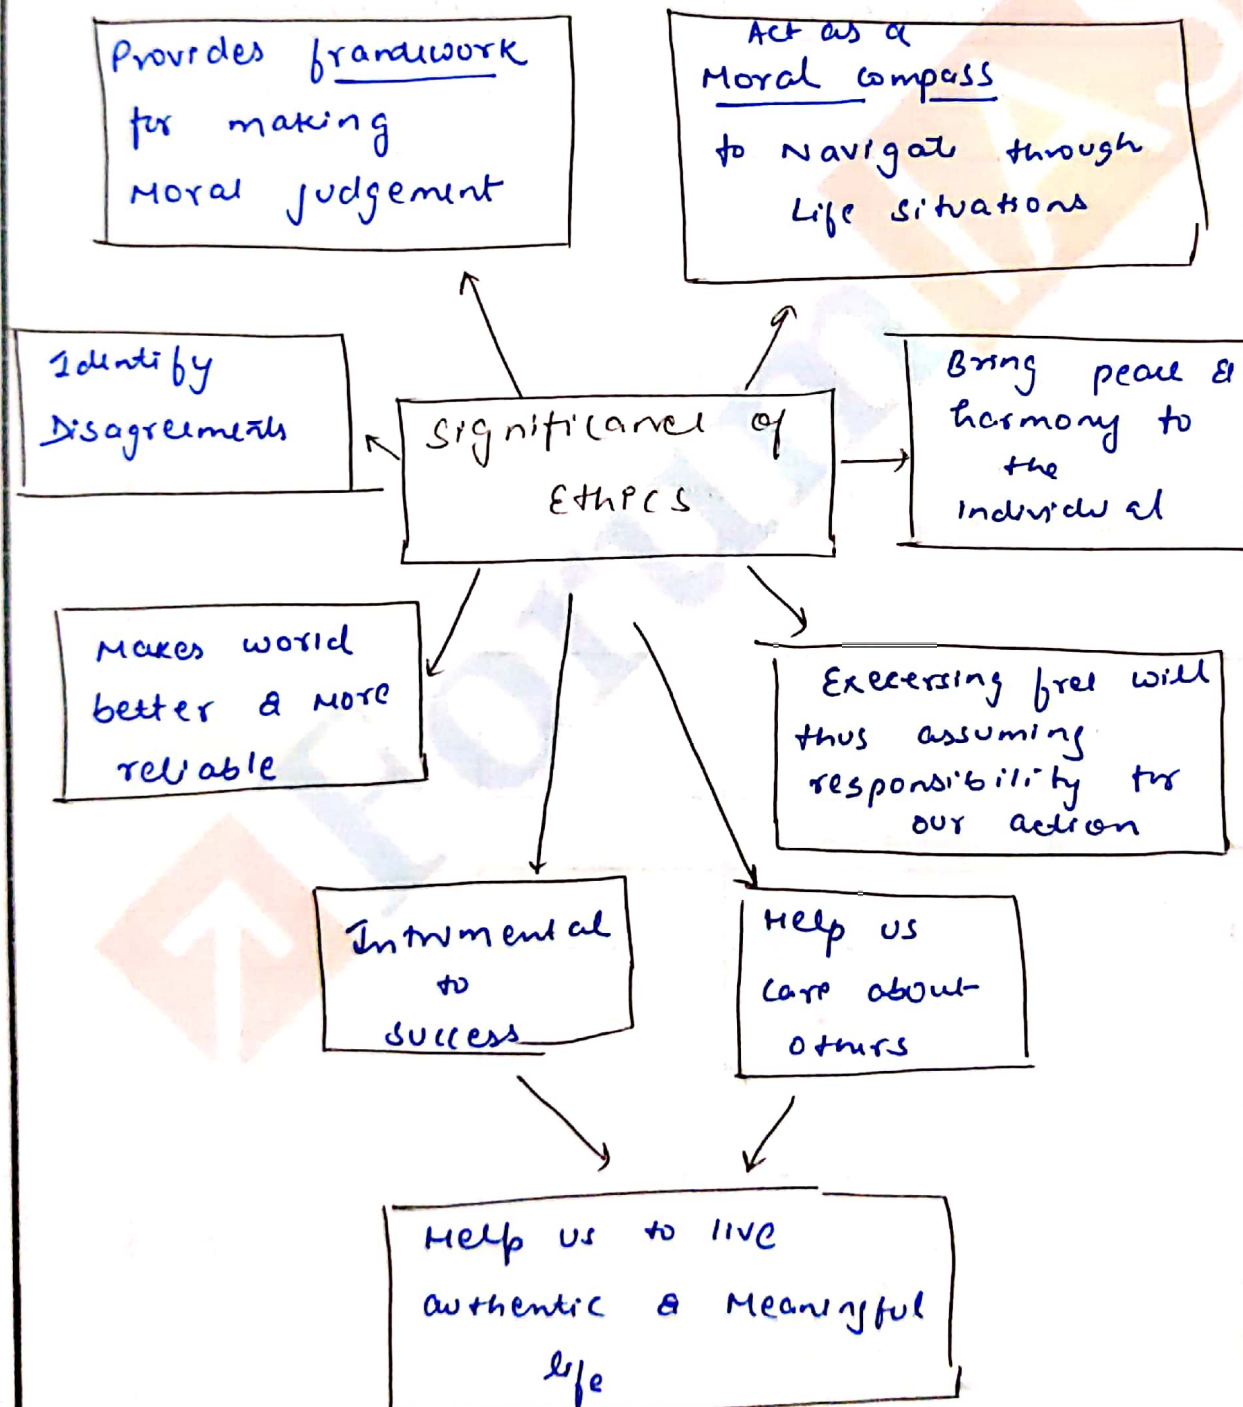 Provides framework
for making
Moral judgement
Act as a
Moral compass
to Navigate through
Life situations
Identify
Disagreements
Significance of
Ethics
Bring peace &
harmony to
the
individual
Makes world
better & More
reliable
Execersing free will
thus assuming
responsibility for
our action
Intrumental
to
success
Help us
care about
others
Help us to live
authentic & Meaningful
life
ForumIAS